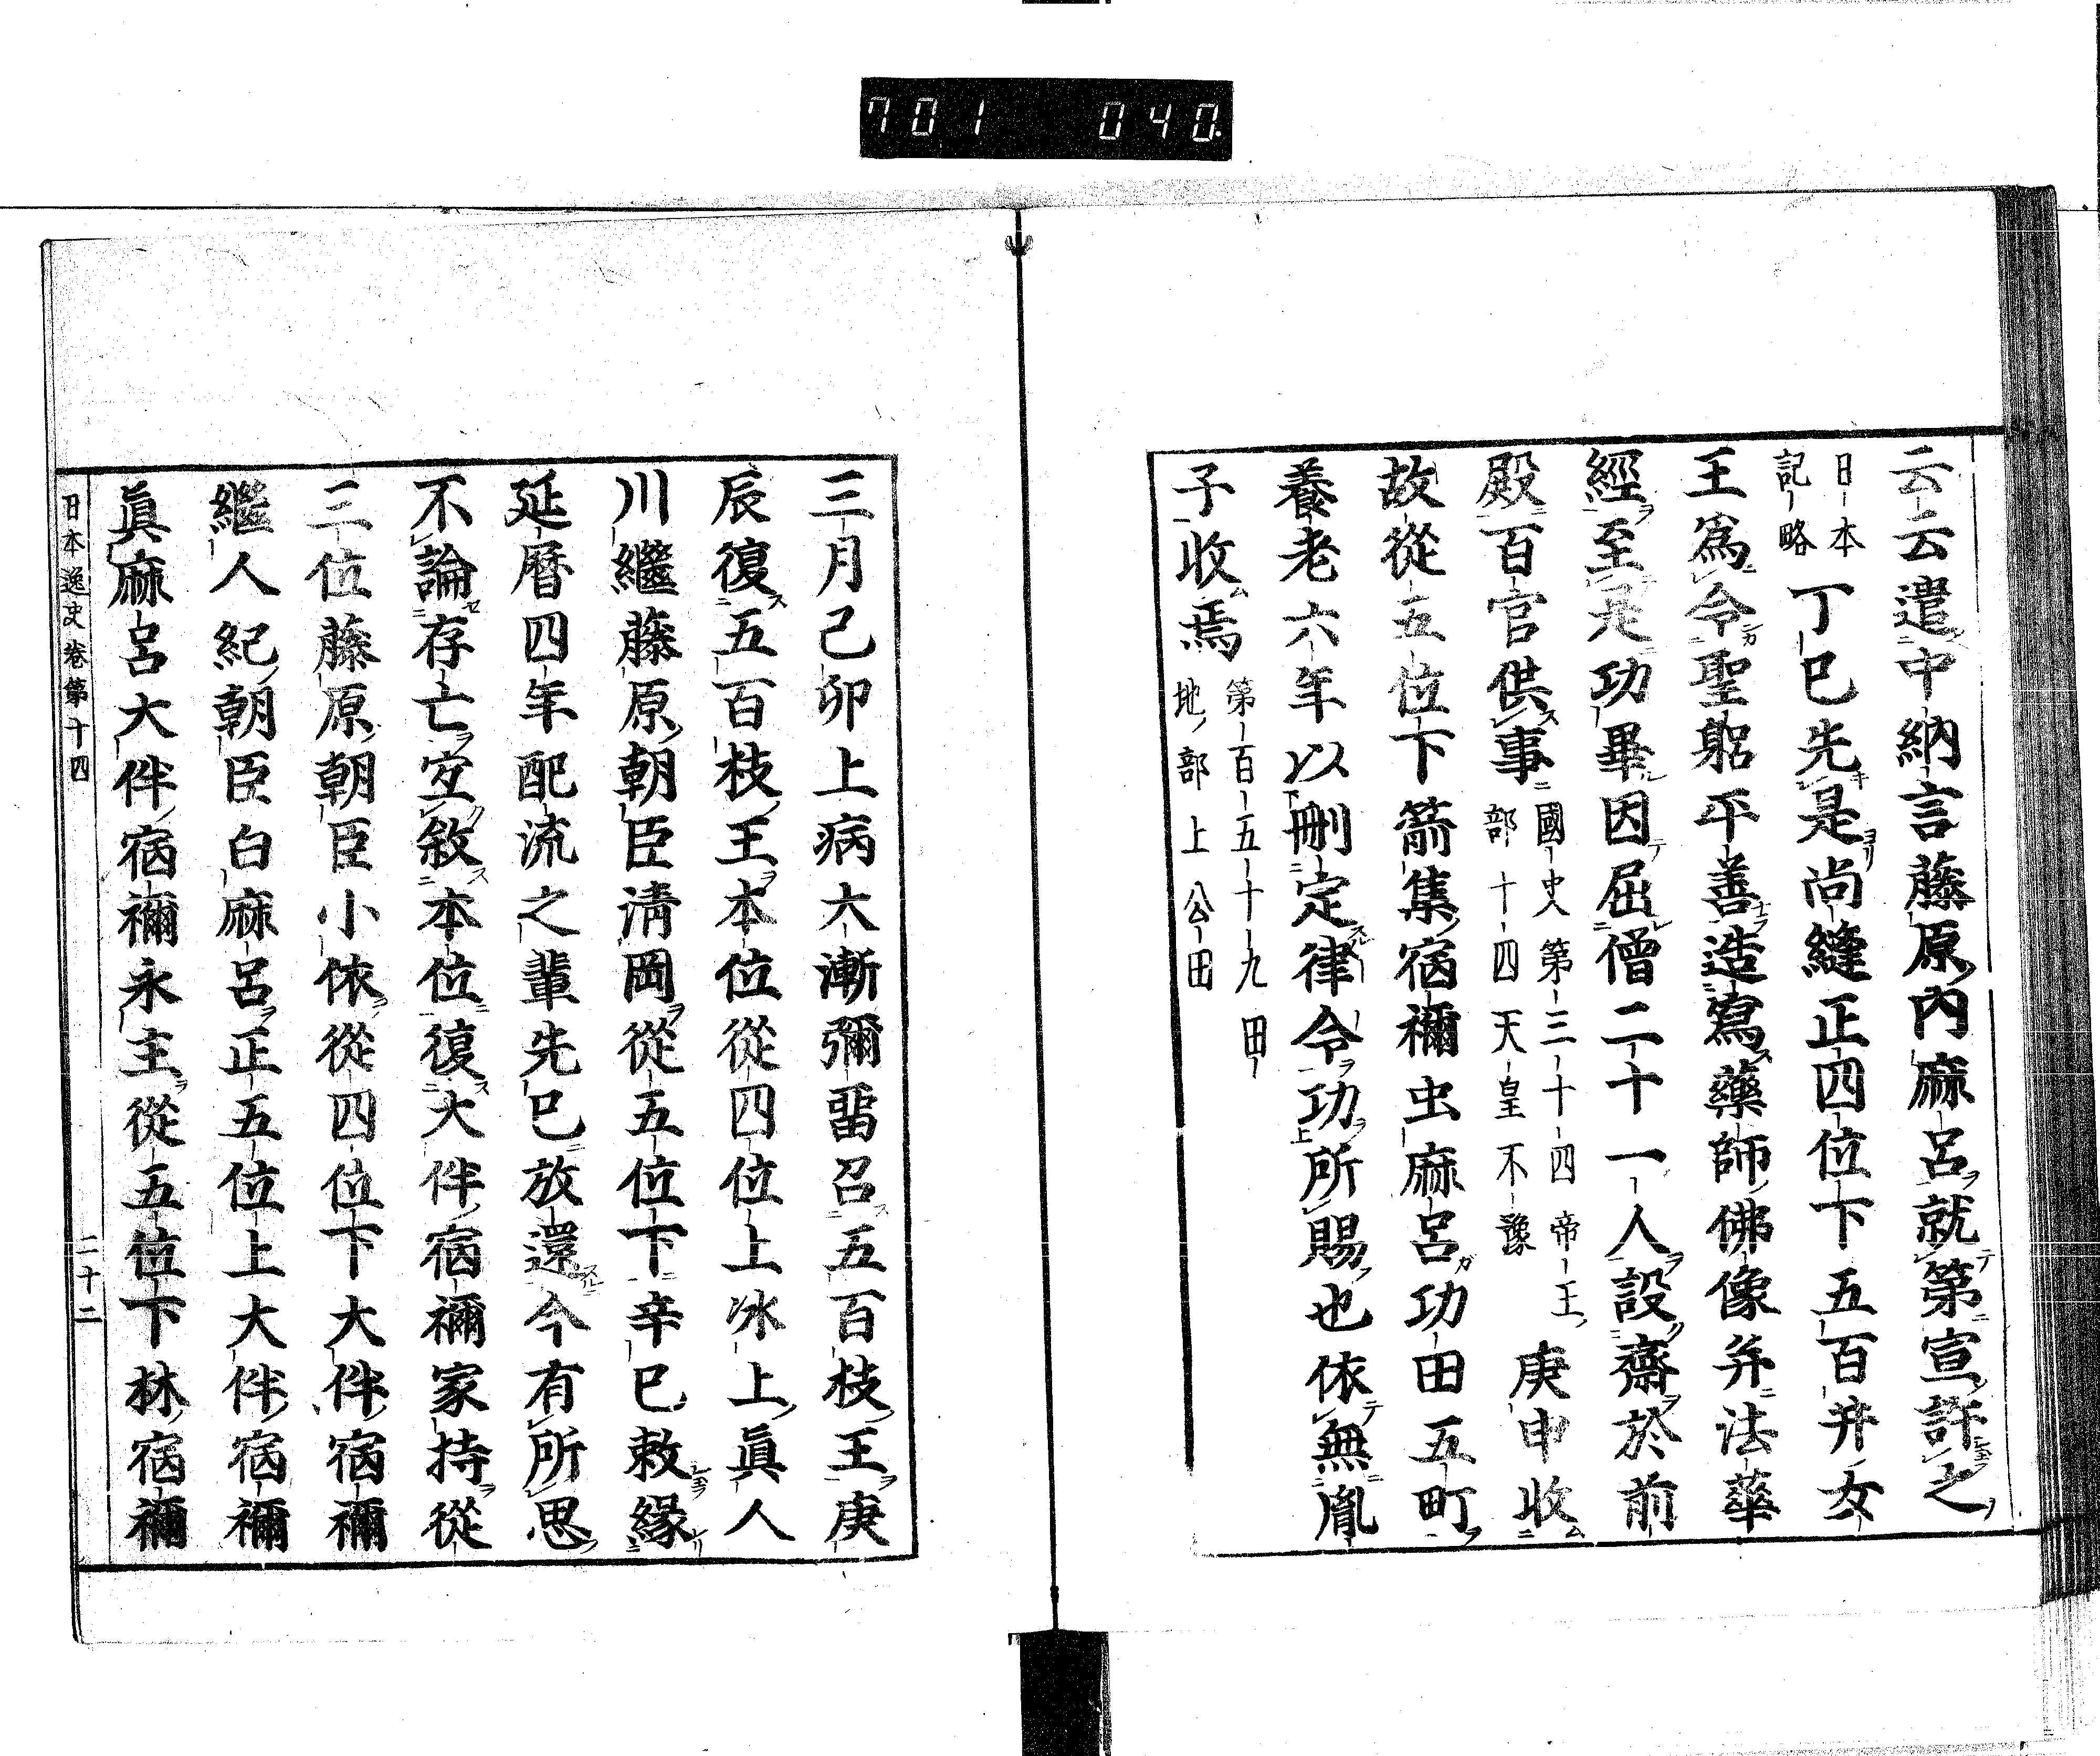 701 040
云云遣中納言藤原內麻呂就第宣許之
日本
記略
丁巳先是尚縫正四位下五百井女
王爲令聖躬平善造寫藥師佛像并法華
經至是功畢因屈僧二十一人設齋於前
殿百官供事
國史第三十四帝王
部十四天皇不豫
庚申收
故從五位下箭集宿禰虫麻呂功田五町
養老六年以刪定律令功所賜也依無胤
子收焉
第百五十九田
地部上公田
三月己卯上病大漸彌留召五百枝王庚
辰復五百枝王本位從四位上氷上眞人
川繼藤原朝臣淸岡從五位下辛巳敕緣
延曆四年配流之輩先已放還今有所思
不論存亡宜敘本位復大伴宿禰家持從
三位藤原朝臣小依從四位下大伴宿禰
繼人紀朝臣白麻呂正五位上大伴宿禰
眞麻呂大伴宿禰永主從五位下林宿禰
日本逸史卷第十四
二十二